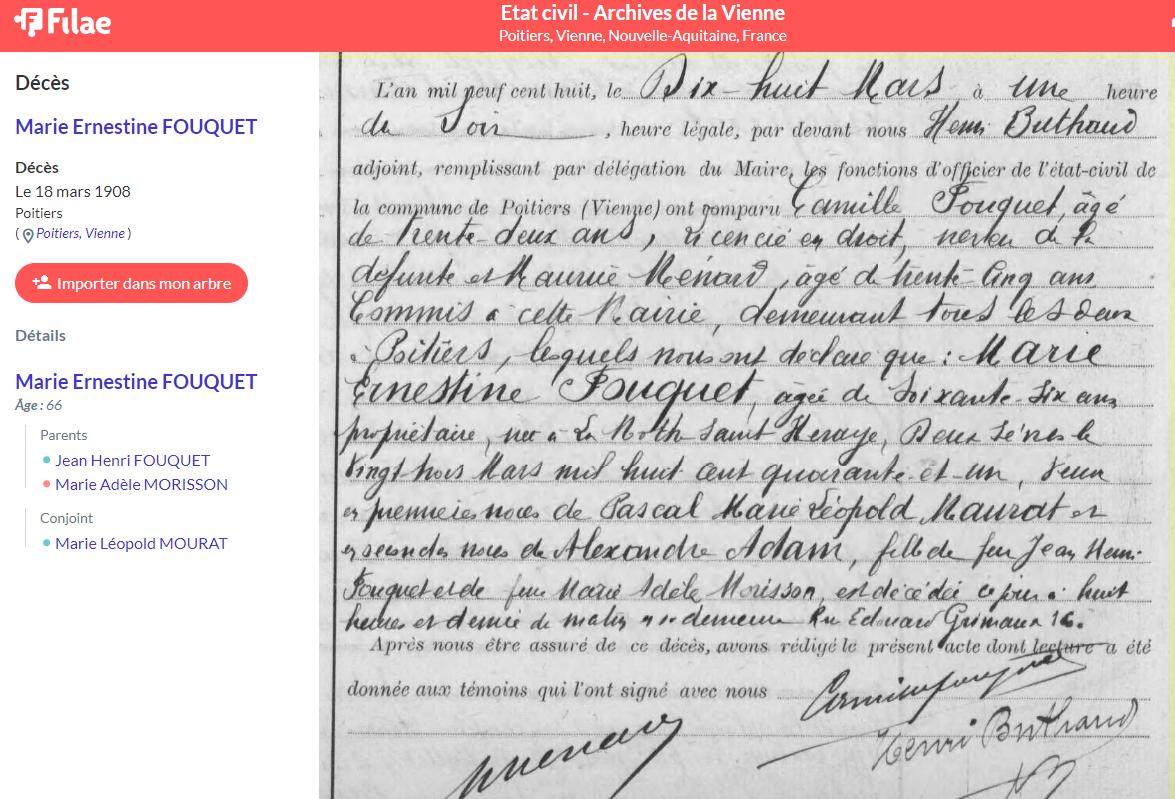 Filae
Etat civil - Archives de la Vienne
Poitiers, Vienne, Nouvelle-Aquitaine, France
Décès
Marie Ernestine FOUQUET
Décès
Le 18 mars 1908
Poitiers
( Poitiers, Vienne )
Importer dans mon arbre
Détails
Marie Ernestine FOUQUET
Âge : 66
Parents
Jean Henri FOUQUET
Marie Adèle MORISSON
Conjoint
Marie Léopold MOURAT
L'an mil neuf cent huit, le Dix-huit Mars à une heure
du Soir, heure légale, par devant nous Henri Buthaud
adjoint, remplissant par délégation du Maire, les fonctions d'officier de l'état-civil de
la commune de Poitiers (Vienne) ont comparu Camille Fouquet, âgé
de trente-deux ans, licencié en droit, neveu de la
défunte et Maurice Ménard, âgé de trente-Cinq ans
Commis à cette Mairie, demeurant tous les deux
à Poitiers, lesquels nous ont déclaré que : Marie
Ernestine Fouquet, âgée de Soixante-Six ans
propriétaire, née à La Mothe Saint Heraye, Deux Sèvres le
Vingt trois Mars mil huit cent quarante-et-un, Veuve
en premières noces de Pascal Marie Léopold Maurat et
en secondes noces de Alexandre Adam, fille de feu Jean Henri
Fouquet et de feue Marie Adèle Morisson, est décédée ce jour à huit
heures et demie du matin en sa demeure Rue Edouard Grimaux 16.
Après nous être assuré de ce décès, avons rédigé le présent acte dont lecture a été
donnée aux témoins qui l'ont signé avec nous
Camille Fouquet
Menard
Henri Buthaud